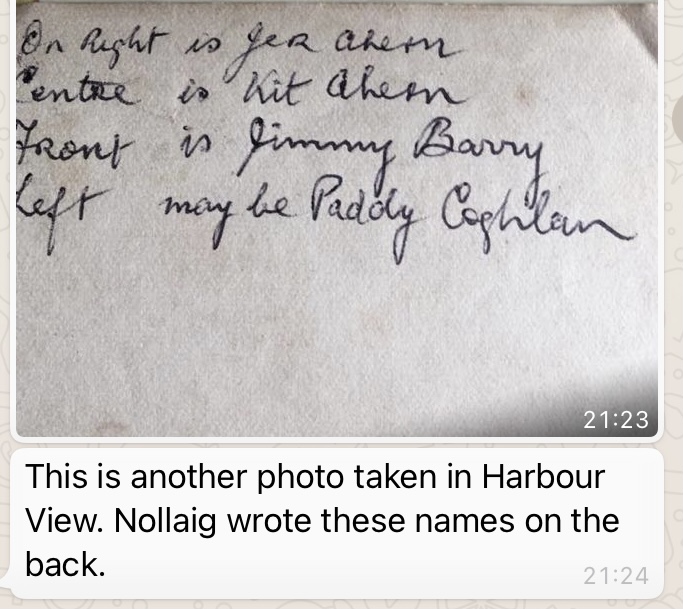 On Right is Jer Ahern
Centre is Kit Ahern
Front is Jimmy Barry
Left may be Paddy Coghlan
21:23
This is another photo taken in Harbour
View. Nollaig wrote these names on the
back.
21:24